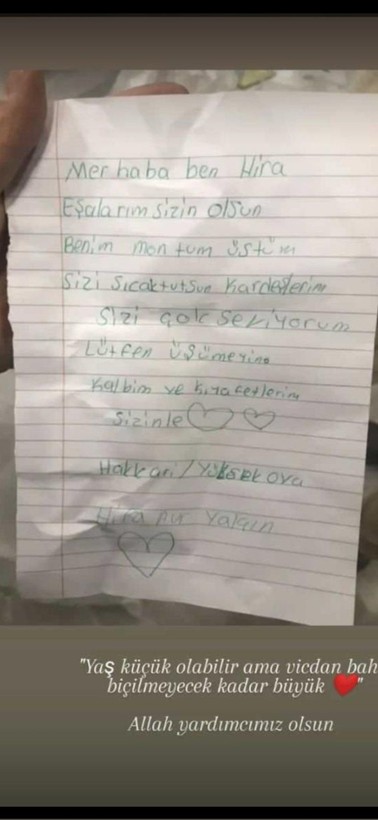 Merhaba ben Hira
Eşalarım sizin olsun
Benim montum üstüm
Sizi sıcak tutsun kardeşlerim
Sizi çok seviyorum
Lütfen üşümeyine
Kalbim ve kıyafetlerim
sizinle
Hakkari / Yüksekova
Hira nur Yalçın
"Yaş küçük olabilir ama vicdan bah
biçilmeyecek kadar büyük ❤️"
Allah yardımcımız olsun